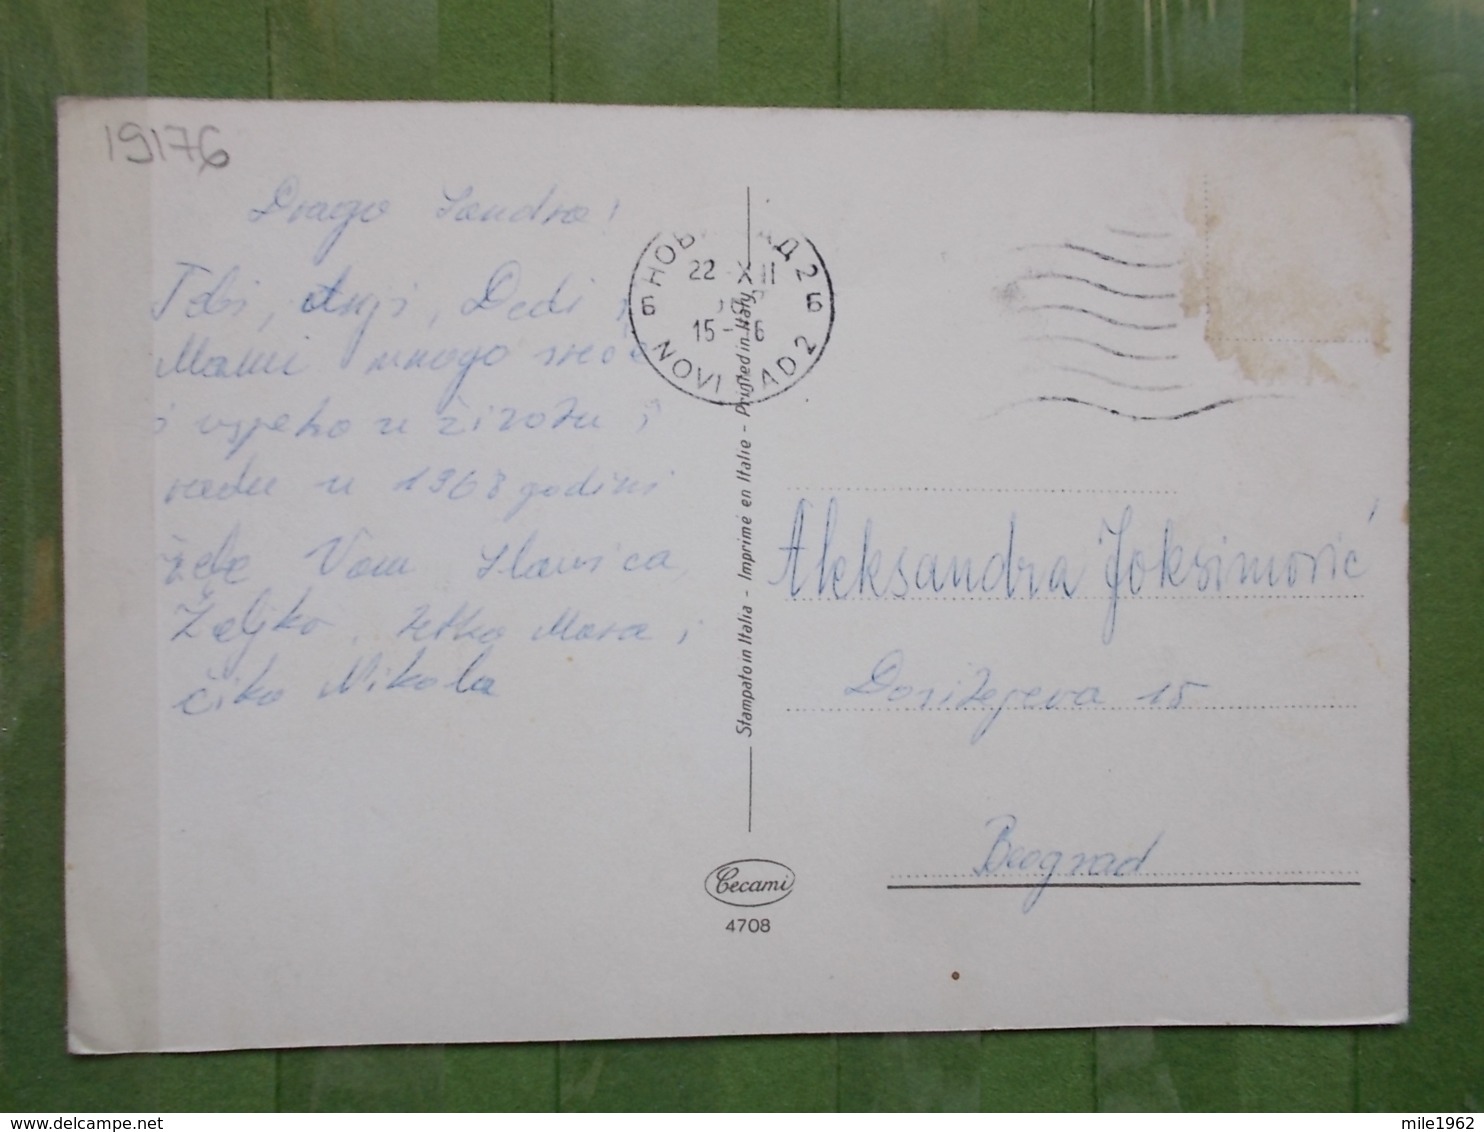 19176
Drago Sandra!
Tebi, Anji, Dedi i
Mami mnogo sreće
i uspeha u životu i
radu u 1968 godini
žele Vam Slavica,
Željko, tetka Mara i
čika Nikola
НОВИ САД 2
22-XII
15-16
Б Б
NOVI SAD 2
Stampato in Italia - Imprimé en Italie - Printed in Italy
Aleksandra Joksimović
Dositejeva 15
Beograd
Cecami
4708
mile1962